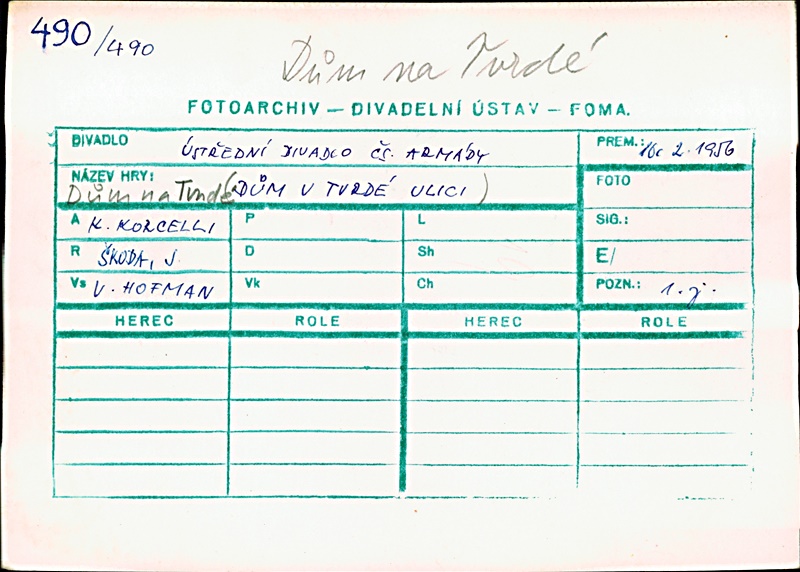 490/490
Dům na Tvrdé
FOTOARCHIV — DIVADELNÍ ÚSTAV — FOMA.
DIVADLO ÚSTŘEDNÍ DIVADLO ČS. ARMÁDY PREM.: 16. 2. 1956
NÁZEV HRY: Dům na Tvrdé (DŮM V TVRDÉ ULICI) FOTO
A K. KORCELLI P L SIG.:
R ŠKODA, J. D Sh E/
Vs V. HOFMAN Vk Ch POZN.: 1. j.
HEREC ROLE HEREC ROLE